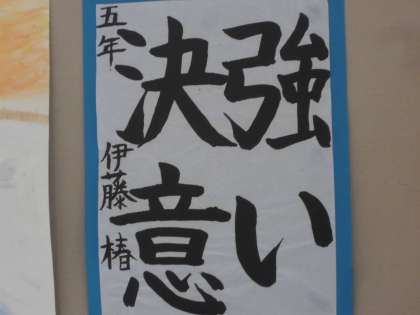 強い
決意
五年 伊藤椿